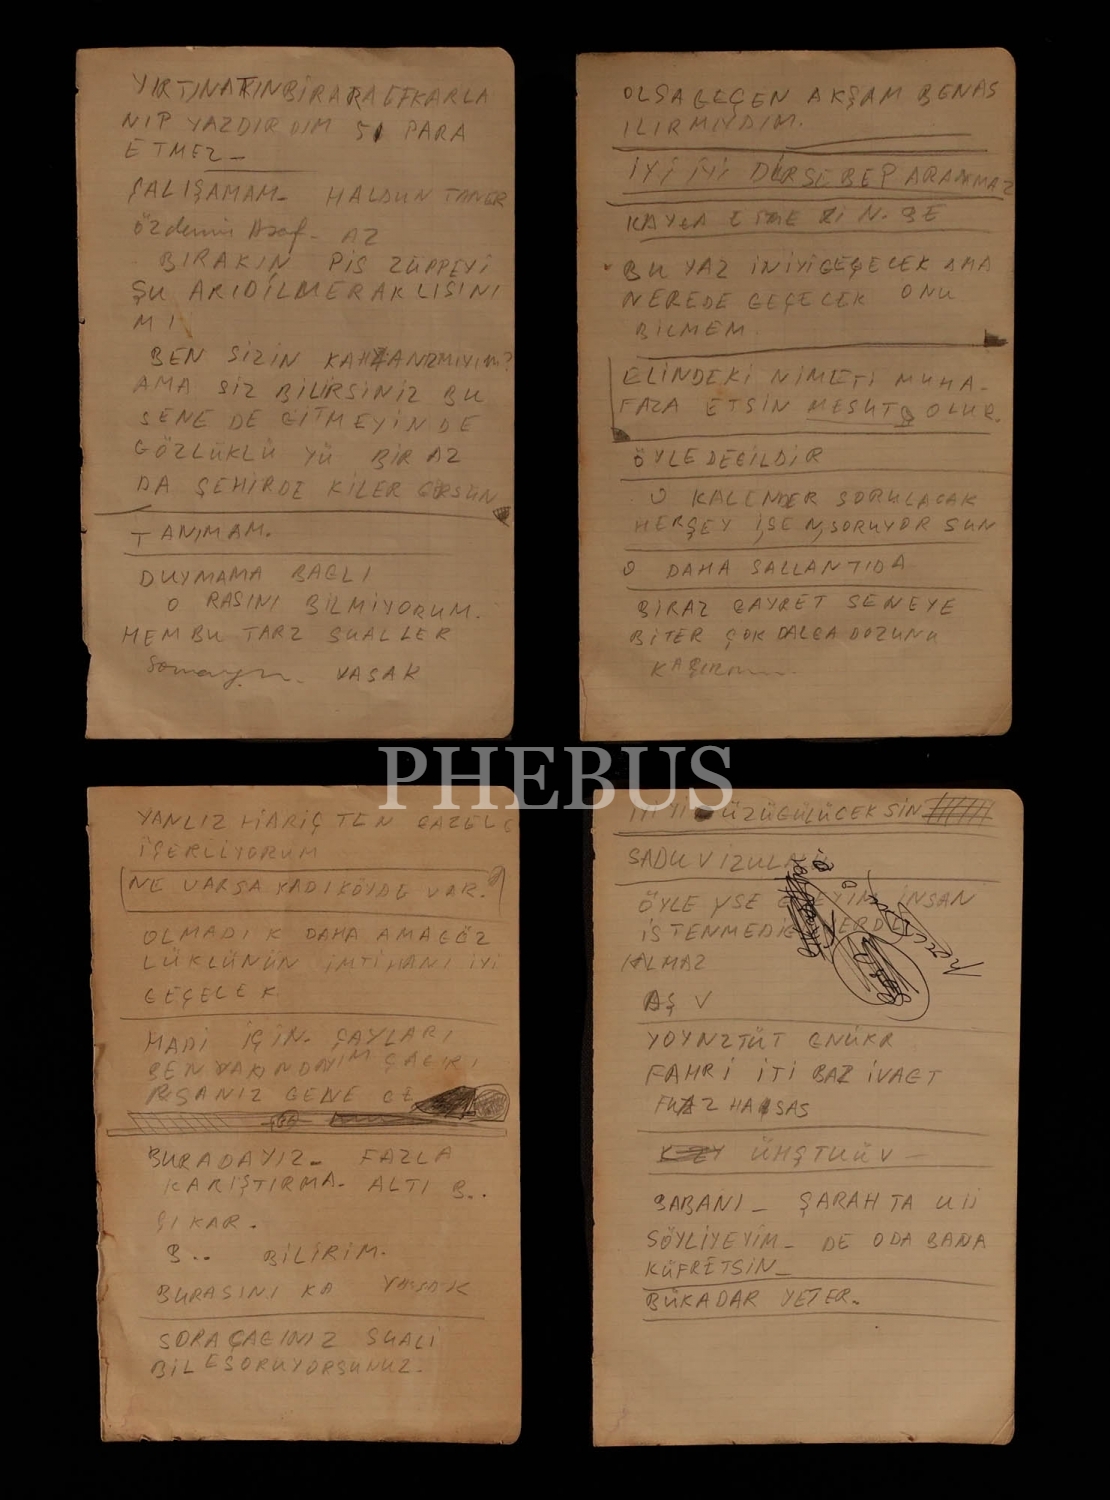 YIRTIN ATIN BİR ARA EFKARLA
NIP YAZDIRDIM 5 PARA
ETMEZ_
ÇALIŞAMAM_ HALDUN TANER
Özdemir Asaf_ AZ
BIRAKIN PİS ZÜPPEYİ
ŞU ARIDİLMERAKLISINI
MI
BEN SİZİN KAHYANIZMIYIM?
AMA SİZ BİLİRSİNİZ BU
SENE DE GİTMEYİN DE
GÖZLÜKLÜ YÜ BİRAZ
DA ŞEHİRDE KİLER GÖRSÜN
TANIMAM.
DUYMAMA BAGLI
O RASINI BİLMİYORUM.
HEM BU TARZ SUALLER
YASAK
OLSA GEÇEN AKŞAM BENAS
ILIRMIYDIM.
İYİ İYİ DER SEBEP ARANMAZ
KAYGA ETME ZİN. BE
BU YAZ İNİYİGEÇECEK AMA
NEREDE GEÇECEK ONU
BİLMEM.
ELİNDEKİ NİMETİ MUHA-
FAZA ETSİN MESUT OLUR.
ÖYLE DEGİLDİR
O KALENDER SORULACAK
HERŞEY İŞE N, SORUYOR SUN
O DAHA SALLANTIDA
BİRAZ GAYRET SENEYE
BİTER ÇOK DALGA DOZUNU
KAÇIRMA
PHEBUS
YANLIZ HARİÇ TEN GAZELE
İÇERLİYORUM
NE VARSA KADIKÖYDE VAR.
OLMADI K DAHA AMA GÖZ
LÜKLÜNÜN İMTİHANI İYİ
GEÇECEK
HADİ İÇİN. ÇAYLARI
BEN YAKINDAYIM ÇAGIRI
RSANIZ GENE GE
BURADAYIZ_ FAZLA
KARIŞTIRMA_ ALTI B..
ÇIKAR.
B.. BİLİRİM.
BURASINI KA YASAK
SORAÇAGINIZ SUALİ
BİLESORUYORSUNUZ.
ÜZÜGÜLÜCEKSİN
SADU VİZULA
ÖYLE YSE GİDEYİM İNSAN
İSTENMEDİGİ YERDE
KALMAZ
AŞ V
YOYNZTÜT GNÜKR
FAHRİ İTİ BAZ İVAGT
HASAS
ÜHŞTUÜV _
BABANI_ ŞARAHTA Uİİ
SÖYLİYEYİM_ DE ODA BANA
KÜFRETSİN_
BÜKADAR YETER.